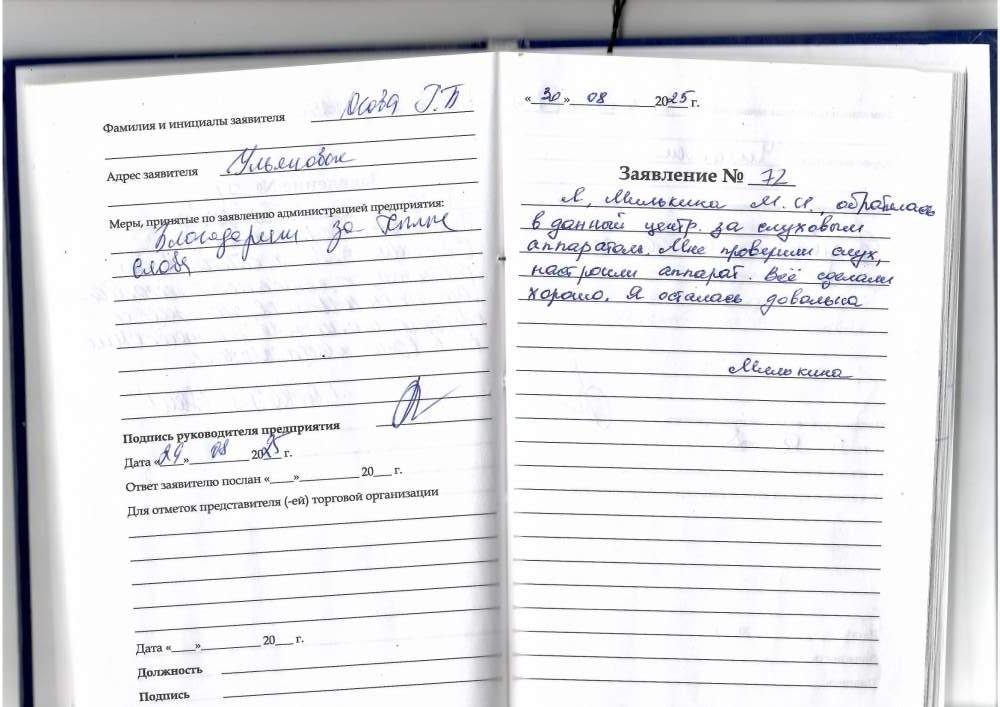 Фамилия и инициалы заявителя Осова Г.Б
Адрес заявителя Ульяновск
Меры, принятые по заявлению администрацией предприятия:
Благодарим за теплые
слова
Подпись руководителя предприятия
Дата «29» 08 2025 г.
Ответ заявителю послан «____»__________ 20___ г.
Для отметок представителя (-ей) торговой организации
Дата «____»__________ 20___ г.
Должность
Подпись
«30» 08 2025 г.
Заявление № 72
Я, Милькина М.И., обратилась
в данный центр. за слуховым
аппаратом. Мне проверили слух,
настроили аппарат. Всё сделали
хорошо. Я осталась довольна
Милькина